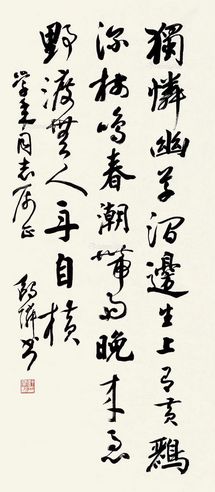 獨憐幽草澗邊生上有黃鸝
深樹鳴春潮帶雨晚来急
野渡無人舟自橫
同志属正
书